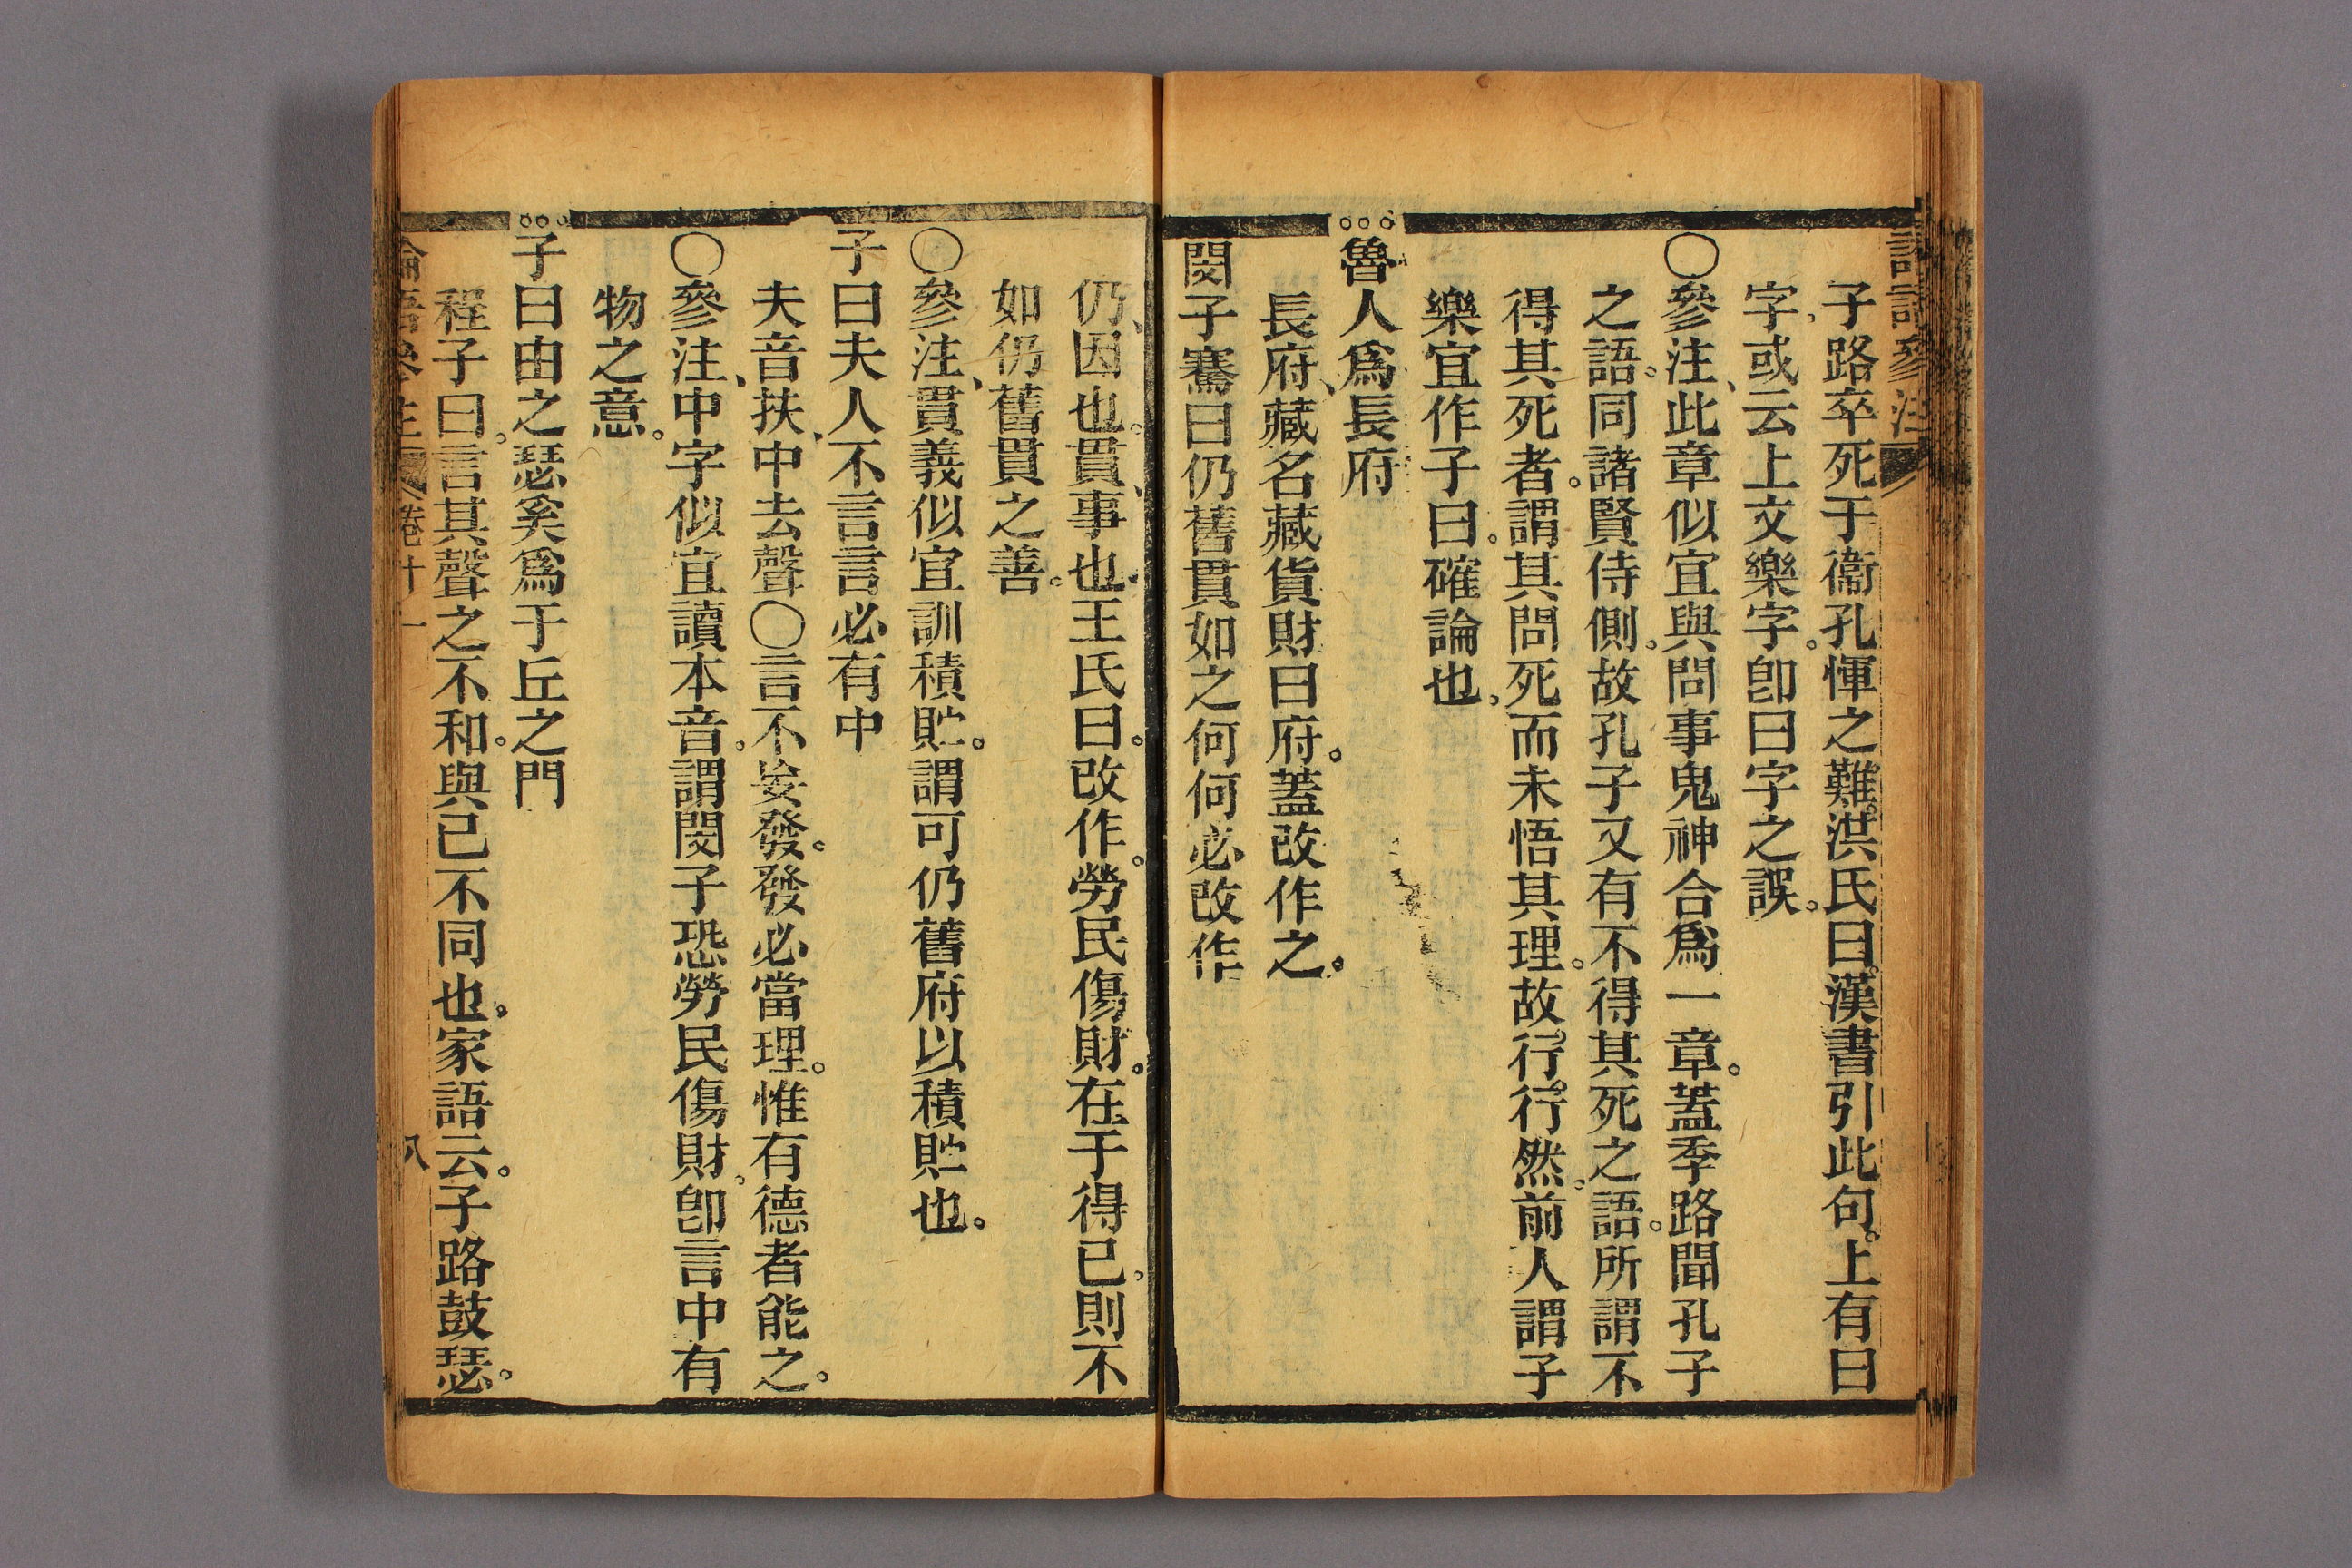 子路卒死于衞孔悝之難。洪氏曰。漢書引此句。上有曰
字。或云上文樂字。卽曰字之誤。
〇參注、此章似宜與問事鬼神合爲一章。蓋季路聞孔子
之語。同諸賢侍側。故孔子又有不得其死之語。所謂不
得其死者。謂其問死而未悟其理。故行行然。前人謂子
樂宜作子曰。確論也。
魯人爲長府
長府、藏名藏貨財曰府。蓋改作之。
閔子騫曰仍舊貫如之何何必改作
仍、因也。貫、事也。王氏曰。改作。勞民傷財。在于得已。則不
如仍舊貫之善。
〇參注、貫義似宜訓積貯。謂可仍舊府以積貯也。
子曰夫人不言言必有中
夫音扶、中去聲〇言不妄發。發必當理。惟有德者能之。
〇參注、中字似宜讀本音。謂閔子恐勞民傷財。卽言中有
物之意。
子曰由之瑟奚爲于丘之門
程子曰。言其聲之不和。與已不同也。家語云。子路鼓瑟。
論語參注 卷十一 八